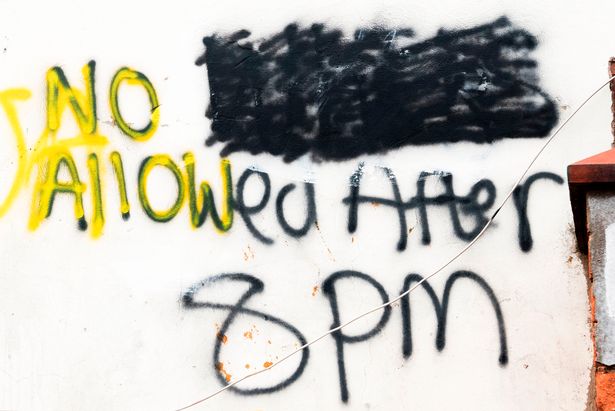 NO
Allowed After
8pm